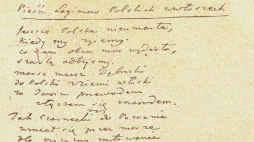 Pieśń Legionów Polskich we Włoszech
Jeszcze Polska nie umarła,
kiedy my żyjemy.
co nam obca moc wydarła,
szablą odbijemy.
Marsz marsz Dąbrowski
do Polski z ziemi włoski
za Twoim przewodem
złączem się z narodem.
Jak Czarnecki do Poznania
wracał się przez morze
dla ojczyzny ratowania